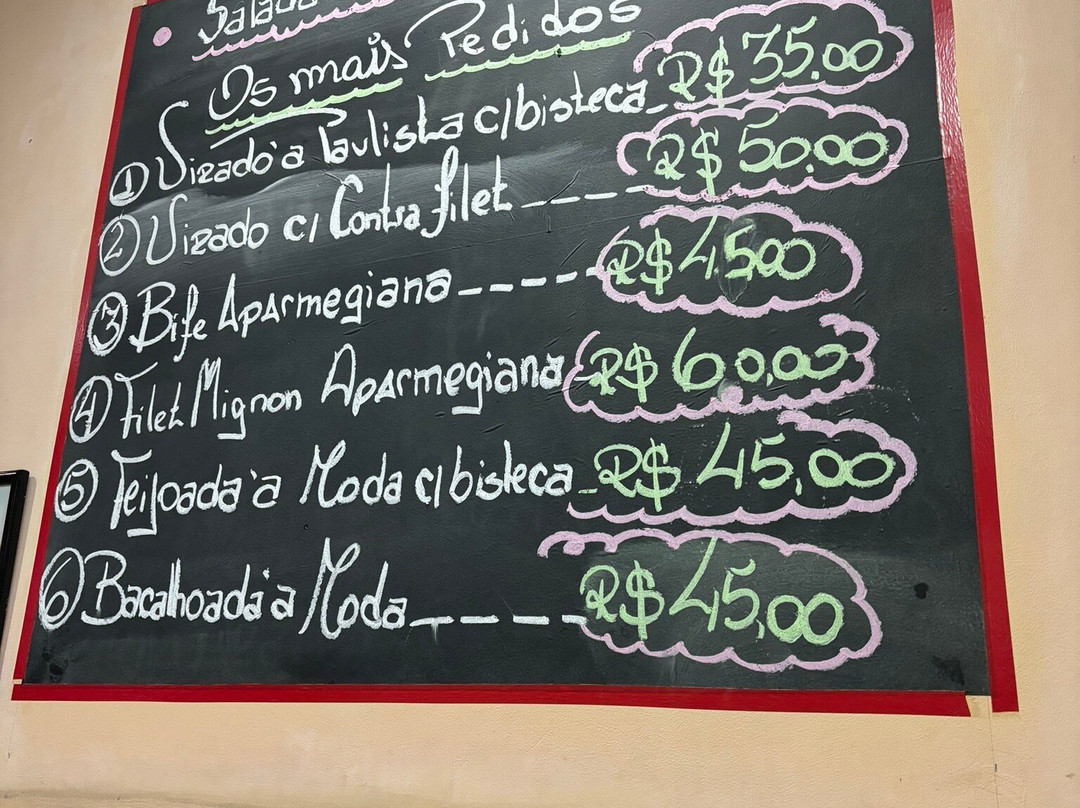 Salada
Os mais Pedidos
1 Virado à Paulista c/bisteca_ R$ 35,00
2 Virado c/ Contra filet --- R$ 50,00
3 Bife Aparmegiana ---- R$ 45,00
4 Filet Mignon Aparmegiana - R$ 60,00
5 Feijoada à Moda c/bisteca - R$ 45,00
6 Bacalhoada à Moda ---- R$ 45,00